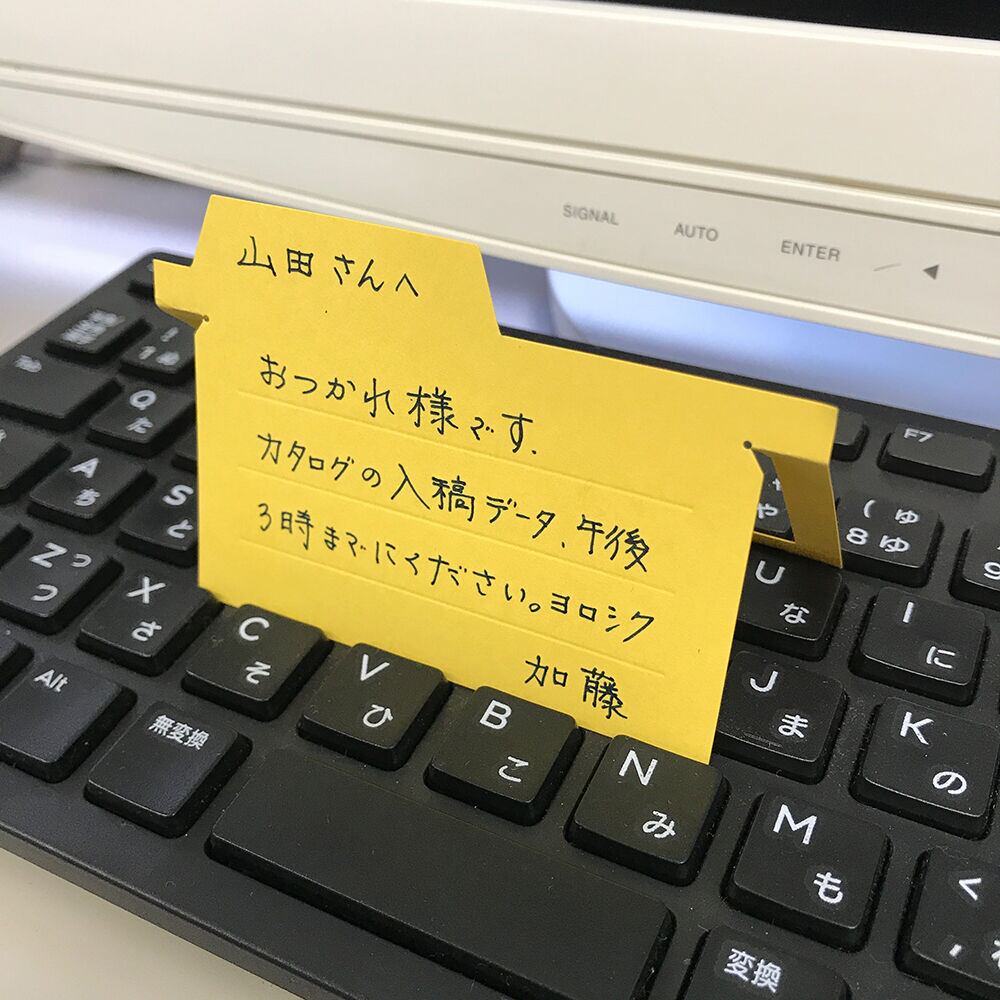 SIGNAL
AUTO
ENTER
山田さんへ
おつかれ様です.
カタログの入稿データ、午後
3時までにください。ヨロシク
加藤
F7
Tab
Q た
A ち
S と
Z つ っ
X さ
C そ
V ひ
B こ
N み
M も
U な
I に
J ま
K の
8 ( ゆ ゅ
Alt
無変換
変換